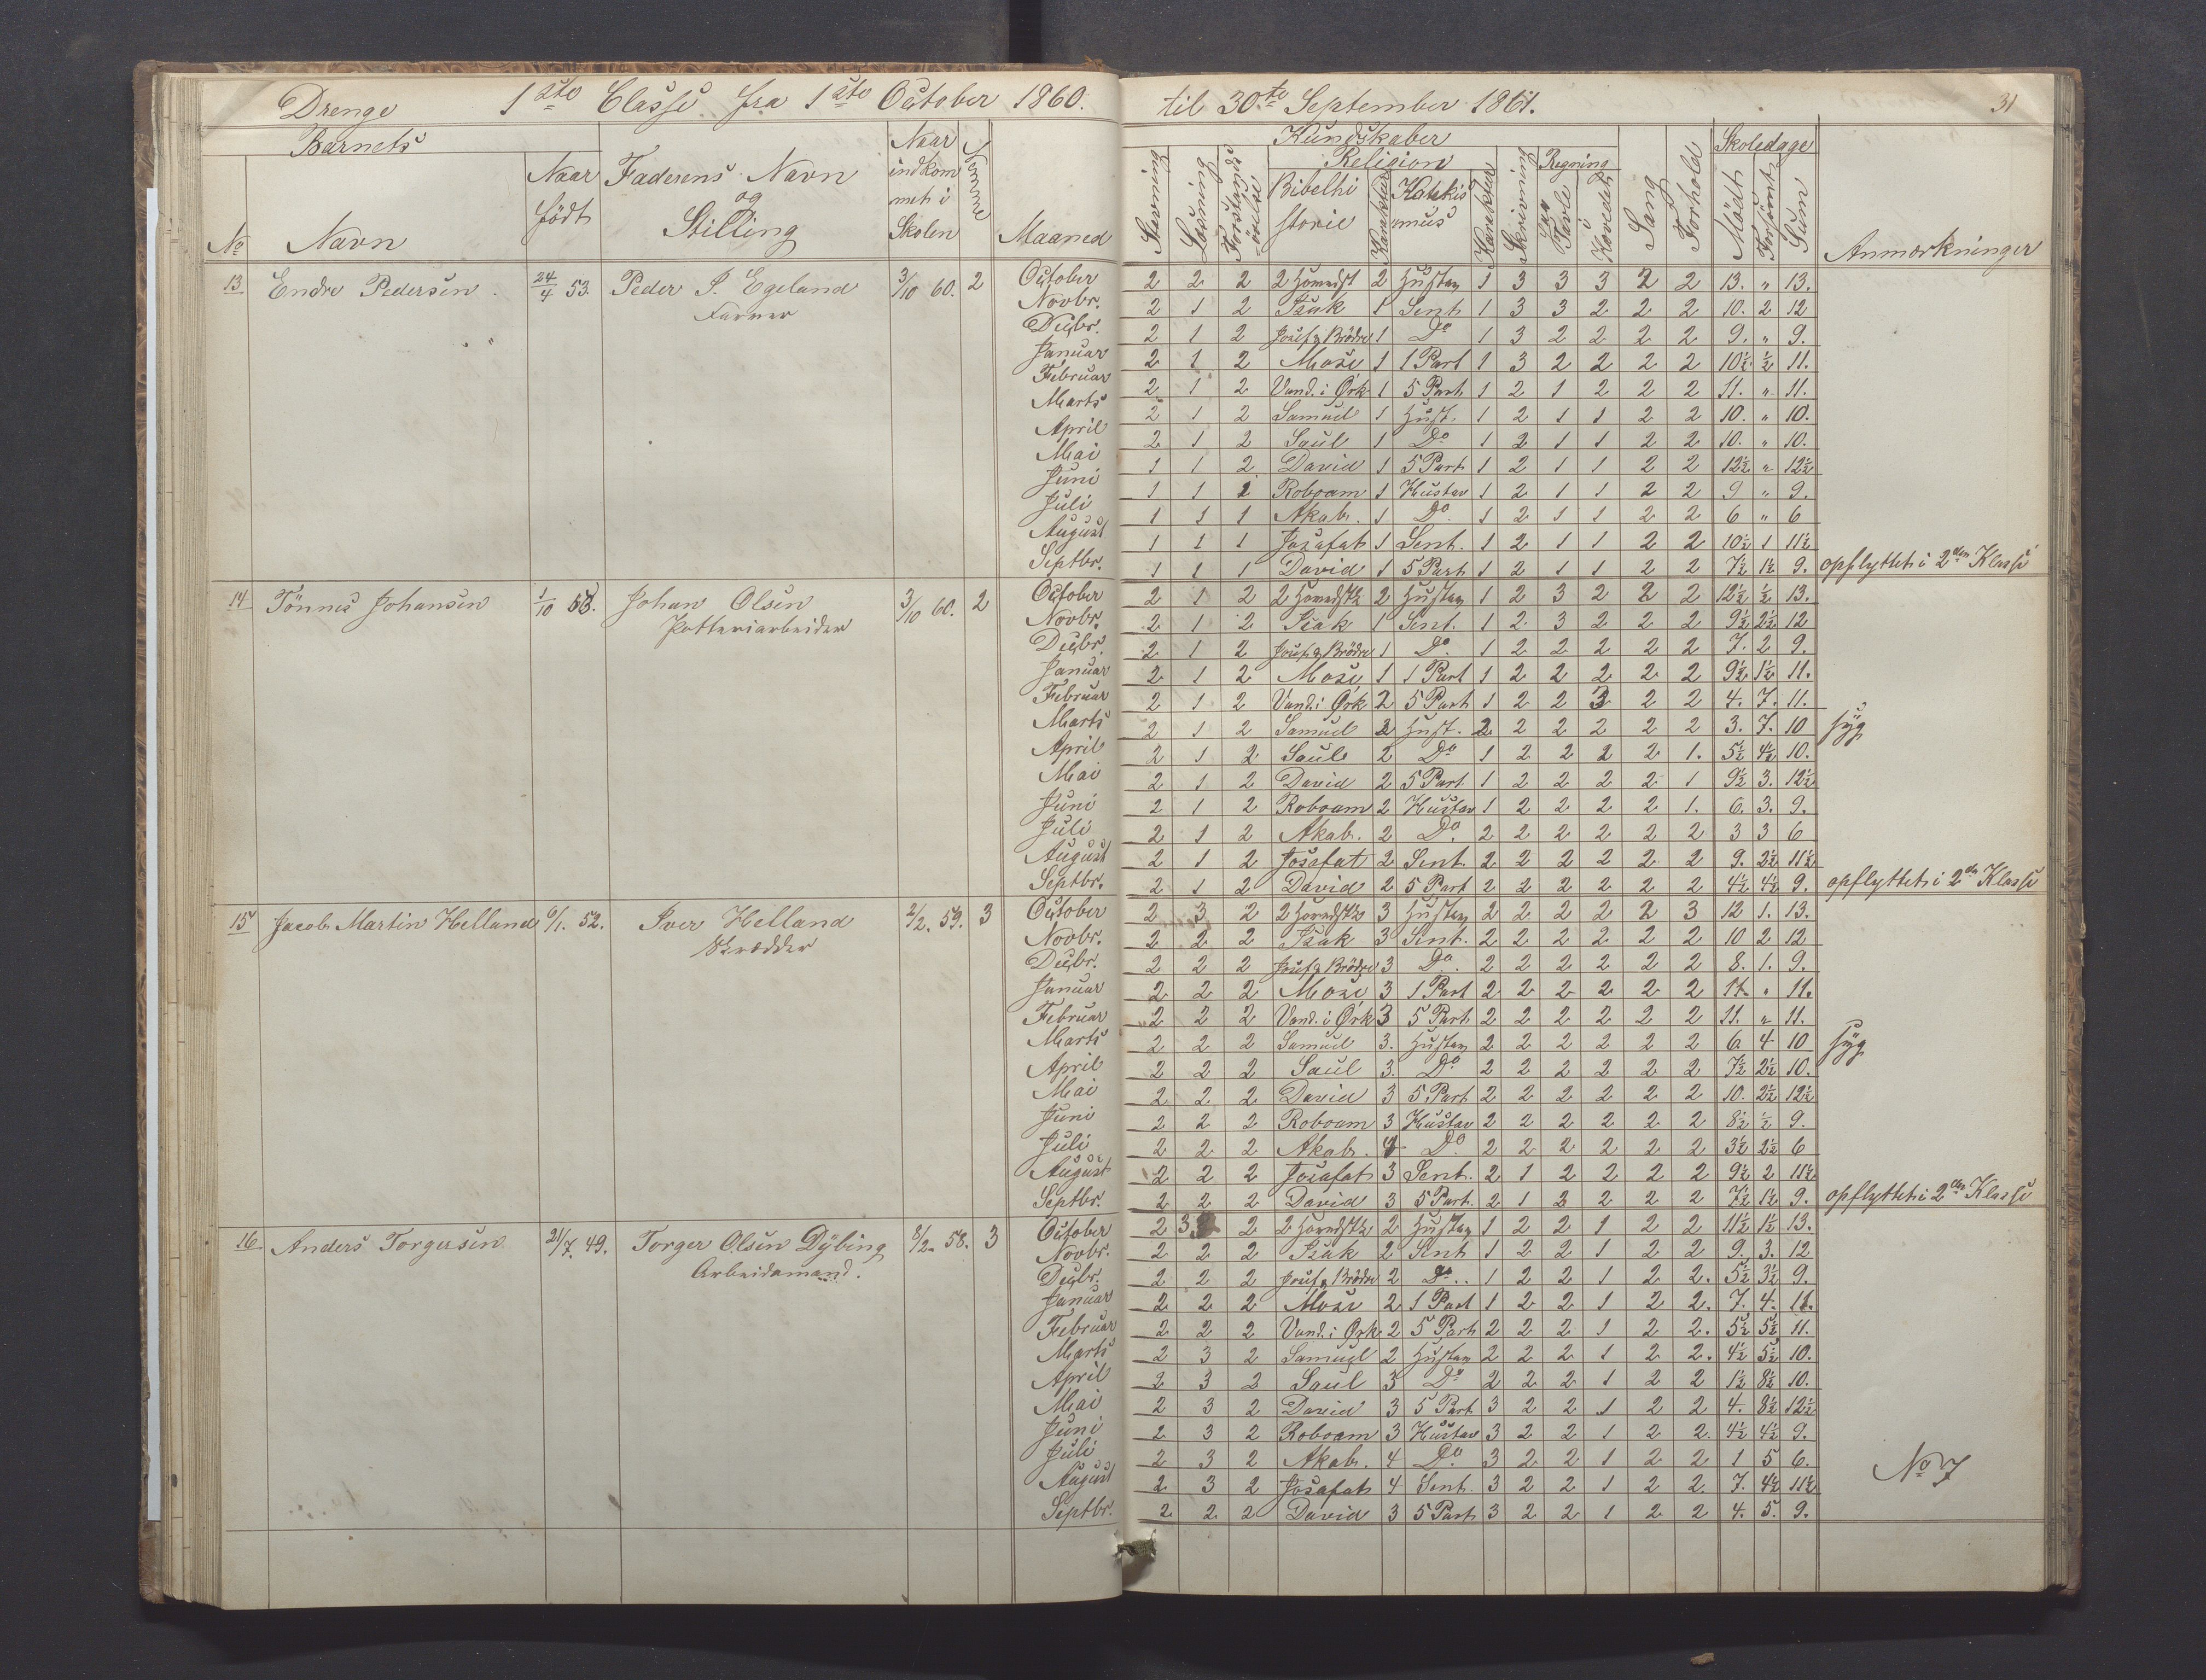 Drenge 1ste Classe fra 1ste October 1860. til 30te September 1861. 31
Barnets Naar Nemme Kundskaber Skoledage
Naar Faderens Navn indkom Religion Regning
født og met i Bibelhi Katekis
No Navn Stilling Skolen Maaned Stavning Læsning Forstands øvelse storie Karakter mus Karakter Skrivning paa Tavle i Hovedet Sang Forhold Mødt Forsømt Sum Anmærkninger
13 Endre Pedersen 24/4 53. Peder P. Egeland 3/10 60. 2 October 2 2 2 2 Hovedst 2 Hustav 1 3 3 3 2 2 13. " 13.
Farver Novbr. 2 1 2 Isak 1 Sent 1 3 3 2 2 2 10. 2 12
Decbr. 2 1 2 Josef og Brödre 1 Do 1 3 2 2 2 2 9. " 9.
Januar 2 1 2 Mose 1 1 Part 1 3 2 2 2 2 10½ ½ 11.
Februar 2 1 2 Vand. i Ørk 1 5 Part 1 2 1 2 2 2 11. " 11.
Marts 2 1 2 Samuel 1 Hust. 1 2 1 1 2 2 10. " 10.
April 2 1 2 Saul 1 Do 1 2 1 1 2 2 10. " 10.
Mai 1 1 2 David 1 5 Part 1 2 1 1 2 2 12½ " 12½
Juni 1 1 1 Roboam 1 Hustav 1 2 1 1 2 2 9 " 9.
Juli 1 1 1 Akab. 1 Do. 1 2 1 1 2 2 6 " 6
August 1 1 1 Josafat 1 Sent. 1 2 1 1 2 2 10½ 1 11½
Septbr. 1 1 1 David 1 5 Part 1 2 1 1 2 2 7½ 1½ 9. opflyttet i 2den Klasse
14 Tönnes Johansen 1/10 53. Johan Olsen 3/10 60. 2 October 2 1 2 2 Hovedstk 2 Hustav 1 2 3 2 2 2 12½ ½ 13.
Potteriarbeider Novbr. 2 1 2 Isak 1 Sent. 1 2 3 2 2 2 9½ 2½ 12
Decbr. 2 1 2 Josef og Brödre 1 Do. 1 2 2 2 2 2 7. 2 9.
Januar 2 1 2 Mose 1 1 Part 1 2 2 2 2 2 9½ 1½ 11.
Februar 2 1 2 Vand. i Ørk 2 5 Part 1 2 2 2 2 2 4. 7. 11.
Marts 2 1 2 Samuel 2 Hust. 2 2 2 2 2 2 3. 7. 10 syg
April 2 1 2 Saul 2 Do 1 2 2 2 2 1. 5½ 4½ 10.
Mai 2 1 2 David 2 5 Part 1 2 2 2 2 1 9½ 3. 12½
Juni 2 1 2 Roboam 2 Hustav 1 2 2 2 2 1. 6. 3. 9.
Juli 2 1 2 Akab. 2 Do. 2 2 2 2 2 2 3 3 6
August 2 1 2 Josafat 2 Sent. 2 2 2 2 2 2 9. 2½ 11½
Septbr. 2 1 2 David 2 5 Part 2 2 2 2 2 2 4½ 4½ 9. opflyttet i 2den Klasse
15 Jacob Martin Helland 6/1. 52. Iver Helland 2/2. 59. 3 October 2 3 2 2 Hovedstk 3 Hustav 2 2 2 2 2 3 12 1. 13.
Skrædder Novbr. 2 2 2 Isak 3 Sent. 2 2 2 2 2 2 10 2 12
Decbr. 2 2 2 Josef og Brödre 3 Do. 2 2 2 2 2 2 8. 1. 9.
Januar 2 2 2 Mose 3 1 Part 2 2 2 2 2 2 11. " 11.
Februar 2 2 2 Vand. i Ørk 3 5 Part 2 2 2 2 2 2 11. " 11.
Marts 2 2 2 Samuel 3. Hustav 2 2 2 2 2 2 6 4 10 syg
April 2 2 2 Saul 3. Do 2 2 2 2 2 2 7½ 2½ 10.
Mai 2 2 2 David 3 5 Part 2 2 2 2 2 2 10. 2½ 12½
Juni 2 2 2 Roboam 3 Hustav 2 2 2 2 2 2 8½ ½ 9.
Juli 2 2 2 Akab. 4 Do. 2 2 2 2 2 2 3½ 2½ 6
August 2 2 2 Josafat 3 Sent. 2 1 2 2 2 2 9½ 2 11½
Septbr. 2 2 2 David 3 5 Part. 2 1 2 2 2 2 7½ 1½ 9. opflyttet i 2den Klasse
16 Anders Torgersen 21/7. 49. Torger Olsen Dybing 8/2. 58. 3 October 2 3 2 2 Hovedstk 2 Hustav 1 2 2 1 2 2 11½ 1½ 13.
Arbeidsmand. Novbr. 2 2 2 Isak 2 Sent 1 2 2 1 2 2 9. 3. 12
Decbr. 2 2 2 Josef og Brödre 2 Do.. 1 2 2 1 2 2. 5½ 3½ 9.
Januar 2 2 2 Mose 2 1 Part 1 2 2 1 2 2. 7. 4. 11.
Februar 2 2 2 Vand. i Ørk 2 5 Part 2 2 2 1 2 2. 5½ 5½ 11.
Marts 2 3 2 Samuel 2 Hustav 2 2 2 1 2 2. 4½ 5½ 10.
April 2 3 2 Saul 3 Do 2 2 2 1 2 2 1½ 8½ 10.
Mai 2 3 2 David 3 5 Part 3 2 2 1 2 2 4. 8½ 12½
Juni 2 3 2 Roboam 3 Hustav 3 2 2 1 2 2. 4½ 4½ 9.
Juli 2 3 2 Akab. 4 Do. 3 2 2 1 2 2 1 5 6. No 7
August 2 3 2 Josafat 4 Sent. 3 2 2 1 2 2. 7. 4½ 11½
Septbr. 2 2 2 David 3 5 Part 3 2 2 1 2 2 4. 5. 9.